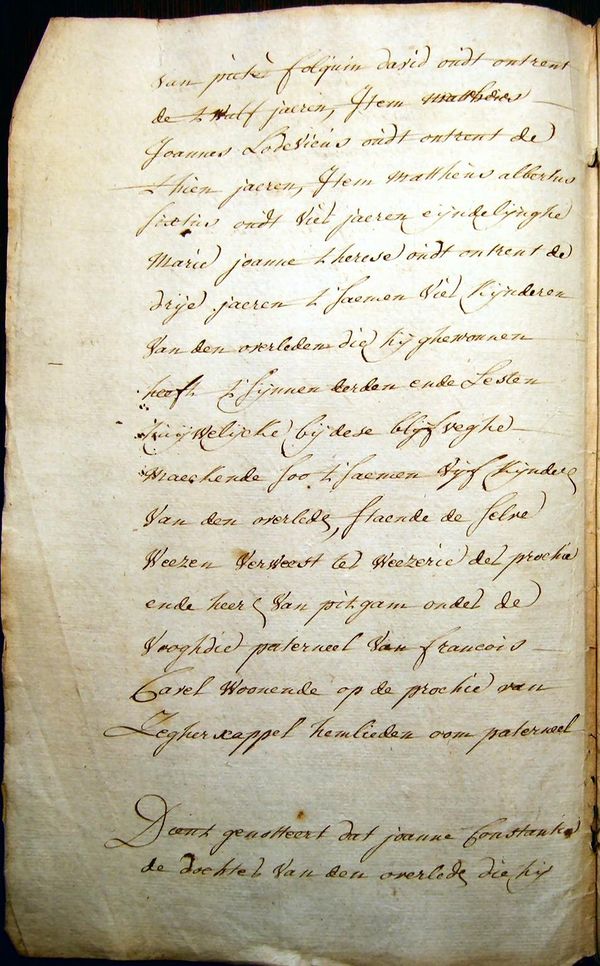 van pieter folquin david oudt ontrent
de twulf jaeren, Item mattheus
Joannes Lodevicus oudt ontrent de
thien jaeren, Item mattheus albertus
sixtus oudt vier jaeren eijndelijnghe
Marie joanne therese oudt ontrent de
drije jaeren t'saemen vier kijnderen
van den overleden die hij ghewonnen
heeft t'sijnnen derden ende Lesten
huijwelijcke bij dese blyfveghe
Maeckende soo t'saemen vijf kijnders
van den overleden, staende de selve
Weezen verweest ter weezerie der prochie
ende heerl van pitgam onder de
vooghdie paterneel van francois
Carel woonende op de prochie van
Zegherscappel hemlieden oom paterneel
Dient genotteert dat joanne Constantia
de dochter van den overleden die hij